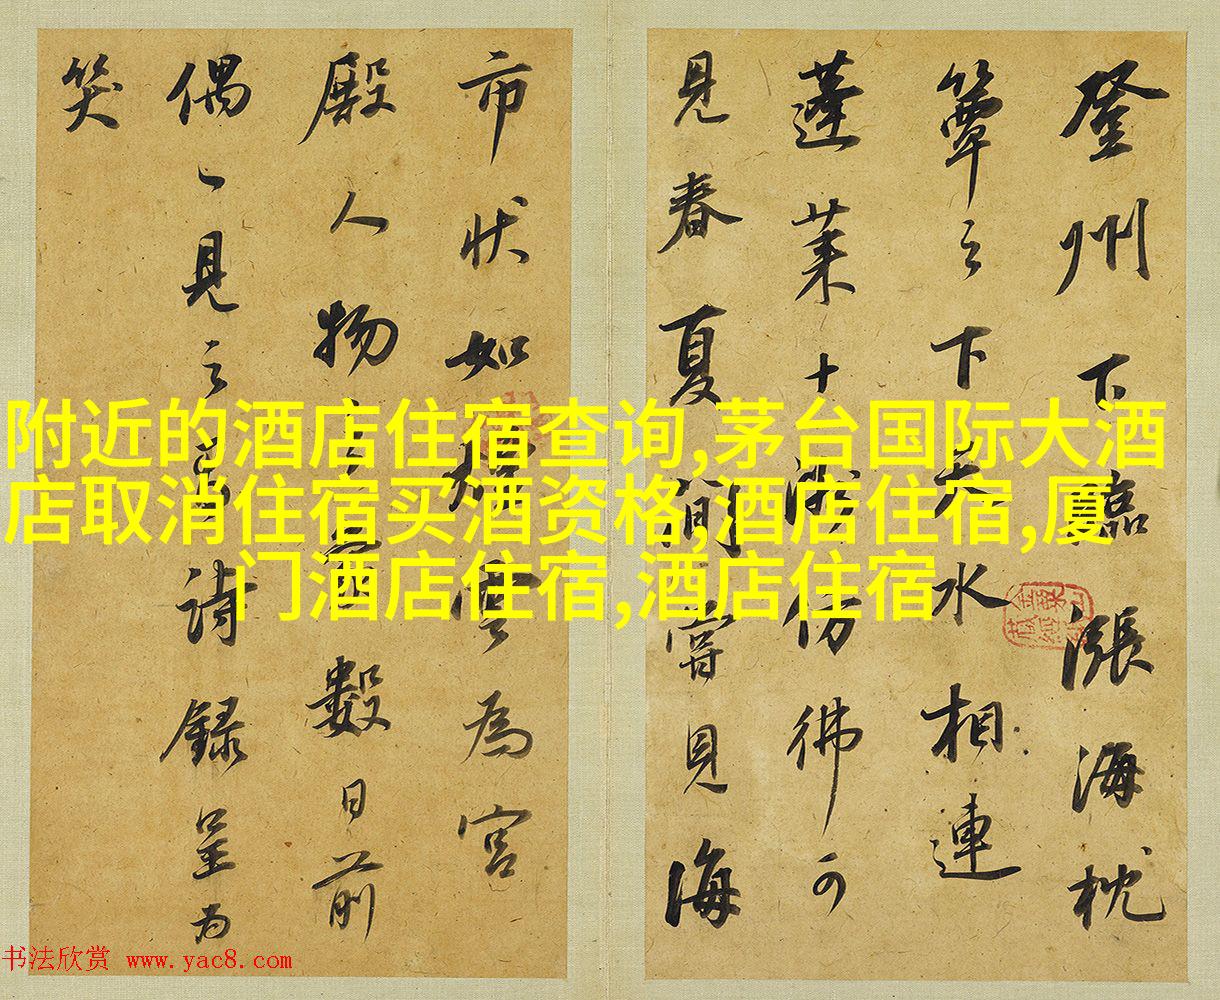 登州下臨漲海枕
簟之下天水相連
蓬萊十洲仿彿可
見春夏間嘗見海
市状如煙雲為宮
殿人物之象數日前
偶一見之詩錄呈為
笑
附近的酒店住宿查询,茅台国际大酒
店取消住宿买酒资格,酒店住宿,厦
门酒店住宿,酒店住宿
书法欣赏 www.yac8.com